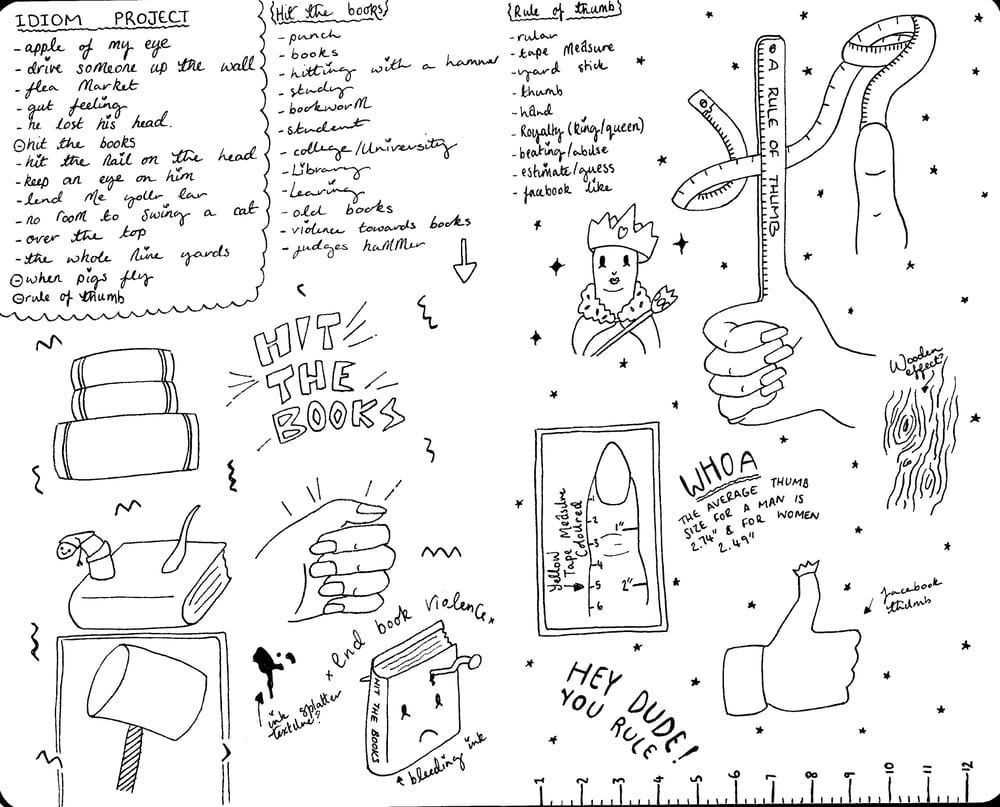 IDIOM PROJECT
- apple of my eye
- drive someone up the wall
- flea market
- gut feeling
- he lost his head.
hit the books
- hit the nail on the head
- keep an eye on him
- lend me your ear
- no room to swing a cat
- over the top
- the whole nine yards
when pigs fly
rule of thumb
{Hit the books}
- punch
- books
- hitting with a hammer
- study
- bookworm
- student
- college/University
- Library
- Learing
- old books
- violence towards books
- judges hammer
{Rule of thumb}
- rular
- tape measure
- yard stick
- thumb
- hand
- Royalty (king/queen)
- beating/abuse
- estimate/guess
- facebook like
A RULE OF THUMB
HIT
THE
BOOKS
Wooden
effect?
Yellow
Tape Measure
Coloured
1
2
3
4
5
6
1"
2"
WHOA
THE AVERAGE THUMB
SIZE FOR A MAN IS
2.74" & FOR WOMEN
2.49"
facebook
thumb
x end book violence x
ink splatter
texture?
HIT THE BOOKS
bleeding ink
HEY DUDE!
YOU RULE
1 2 3 4 5 6 7 8 9 10 11 12